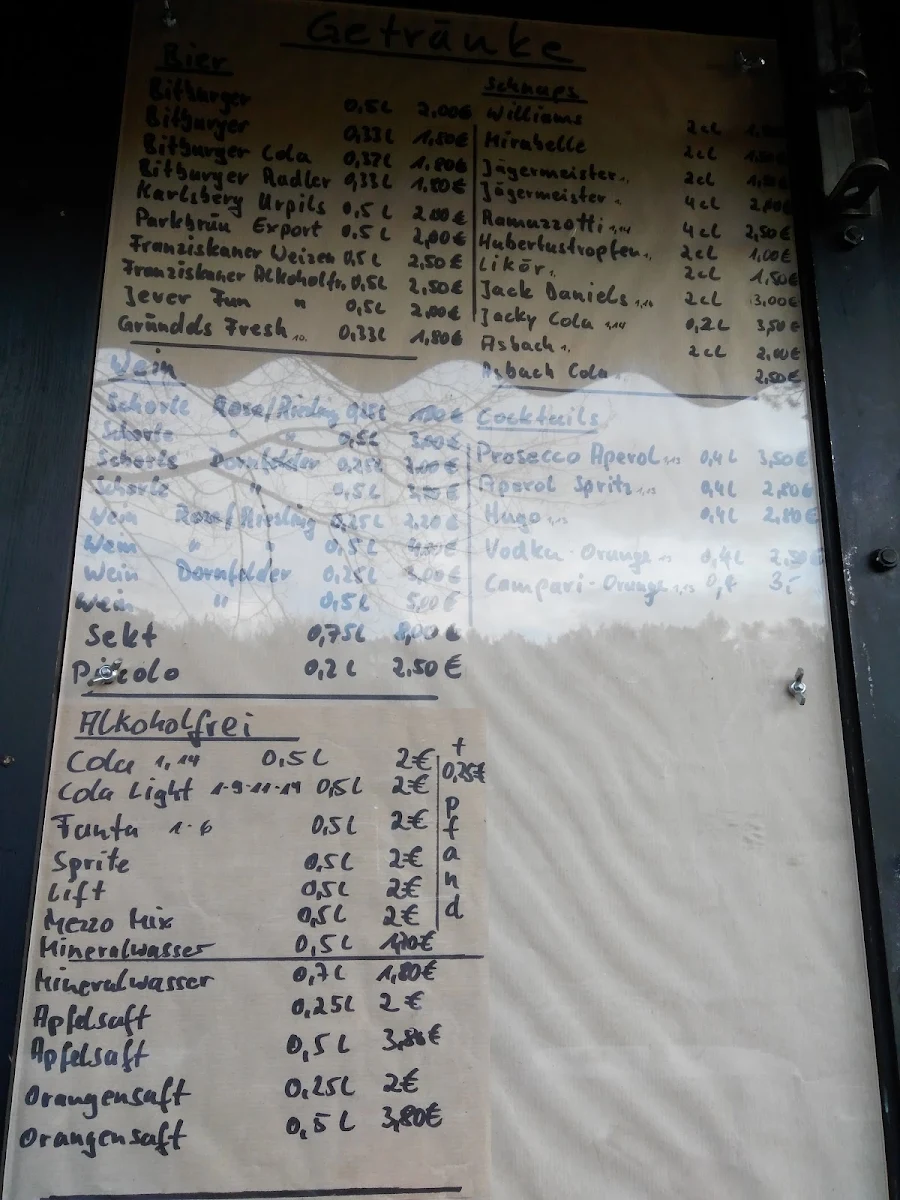 Getränke
Bier
Bitburger 0,5L 2,00€
Bitburger 0,33L 1,80€
Bitburger Cola 0,33L 1,80€
Bitburger Radler 0,33L 1,80€
Karlsberg Urpils 0,5L 2,00€
Parkbräu Export 0,5L 2,00€
Franziskaner Weizen 0,5L 2,50€
Franziskaner Alkoholfr. 0,5L 2,50€
Jever Fun " 0,5L 2,00€
Gründels Fresh 10. 0,33L 1,80€
Wein
Schorle Rose/Riesling 0,25L
Schorle " " 0,5L 3,00€
Schorle Dornfelder 0,25L
Schorle " 0,5L
Wein Rose/Riesling 0,25L 2,20€
Wein " " 0,5L 4,00€
Wein Dornfelder 0,25L 3,00€
Wein " 0,5L 5,00€
Sekt 0,75L 8,00€
Piccolo 0,2L 2,50€
Schnaps
Williams 2cl
Mirabelle 2cl
Jägermeister 2cl
Jägermeister 4cl 2,00€
Ramazzotti 4cl 2,50€
Hubertustropfen 2cl 1,00€
Likör 2cl 1,50€
Jack Daniels 2cl 3,00€
Jacky Cola 0,2L 3,50€
Asbach 2cl 2,00€
Asbach Cola 2,50€
Cocktails
Prosecco Aperol 0,4L 3,50€
Aperol Spritz 0,4L 2,80€
Hugo 0,4L 2,80€
Vodka-Orange 0,4L 2,50€
Campari-Orange 0,4 3,-
Alkoholfrei
Cola 1,14 0,5L 2€
Cola Light 1-9-11-14 0,5L 2€
Fanta 1-6 0,5L 2€
Sprite 0,5L 2€
Lift 0,5L 2€
Mezzo Mix 0,5L 2€
+ 0,25€ Pfand
Mineralwasser 0,5L 1,70€
Mineralwasser 0,7L 1,80€
Apfelsaft 0,25L 2€
Apfelsaft 0,5L 3,80€
Orangensaft 0,25L 2€
Orangensaft 0,5L 3,80€